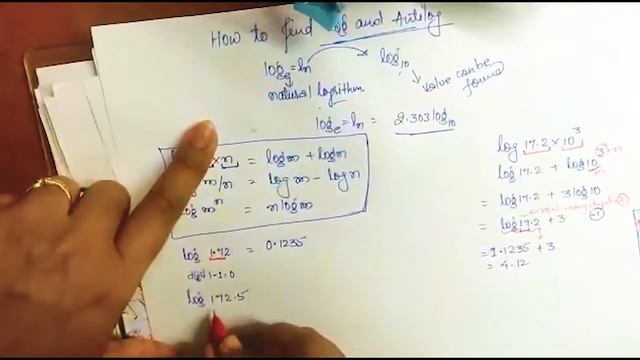 How to find log and Antilog
logₑ = ln → log₁₀
natural logrithm
value can be found
logₑ = ln = 2.303 log₁₀
× n = logm + logn
m/n = logm − logn
log mⁿ = n logm
log 1.72 = 0.1235
digit 1-1=0
log 172.5
log 17.2 × 10³
log 17.2 + log10³
= log 17.2 + 3 log10
= log 17.2 + 3
= 1.1235 + 3
= 4.12